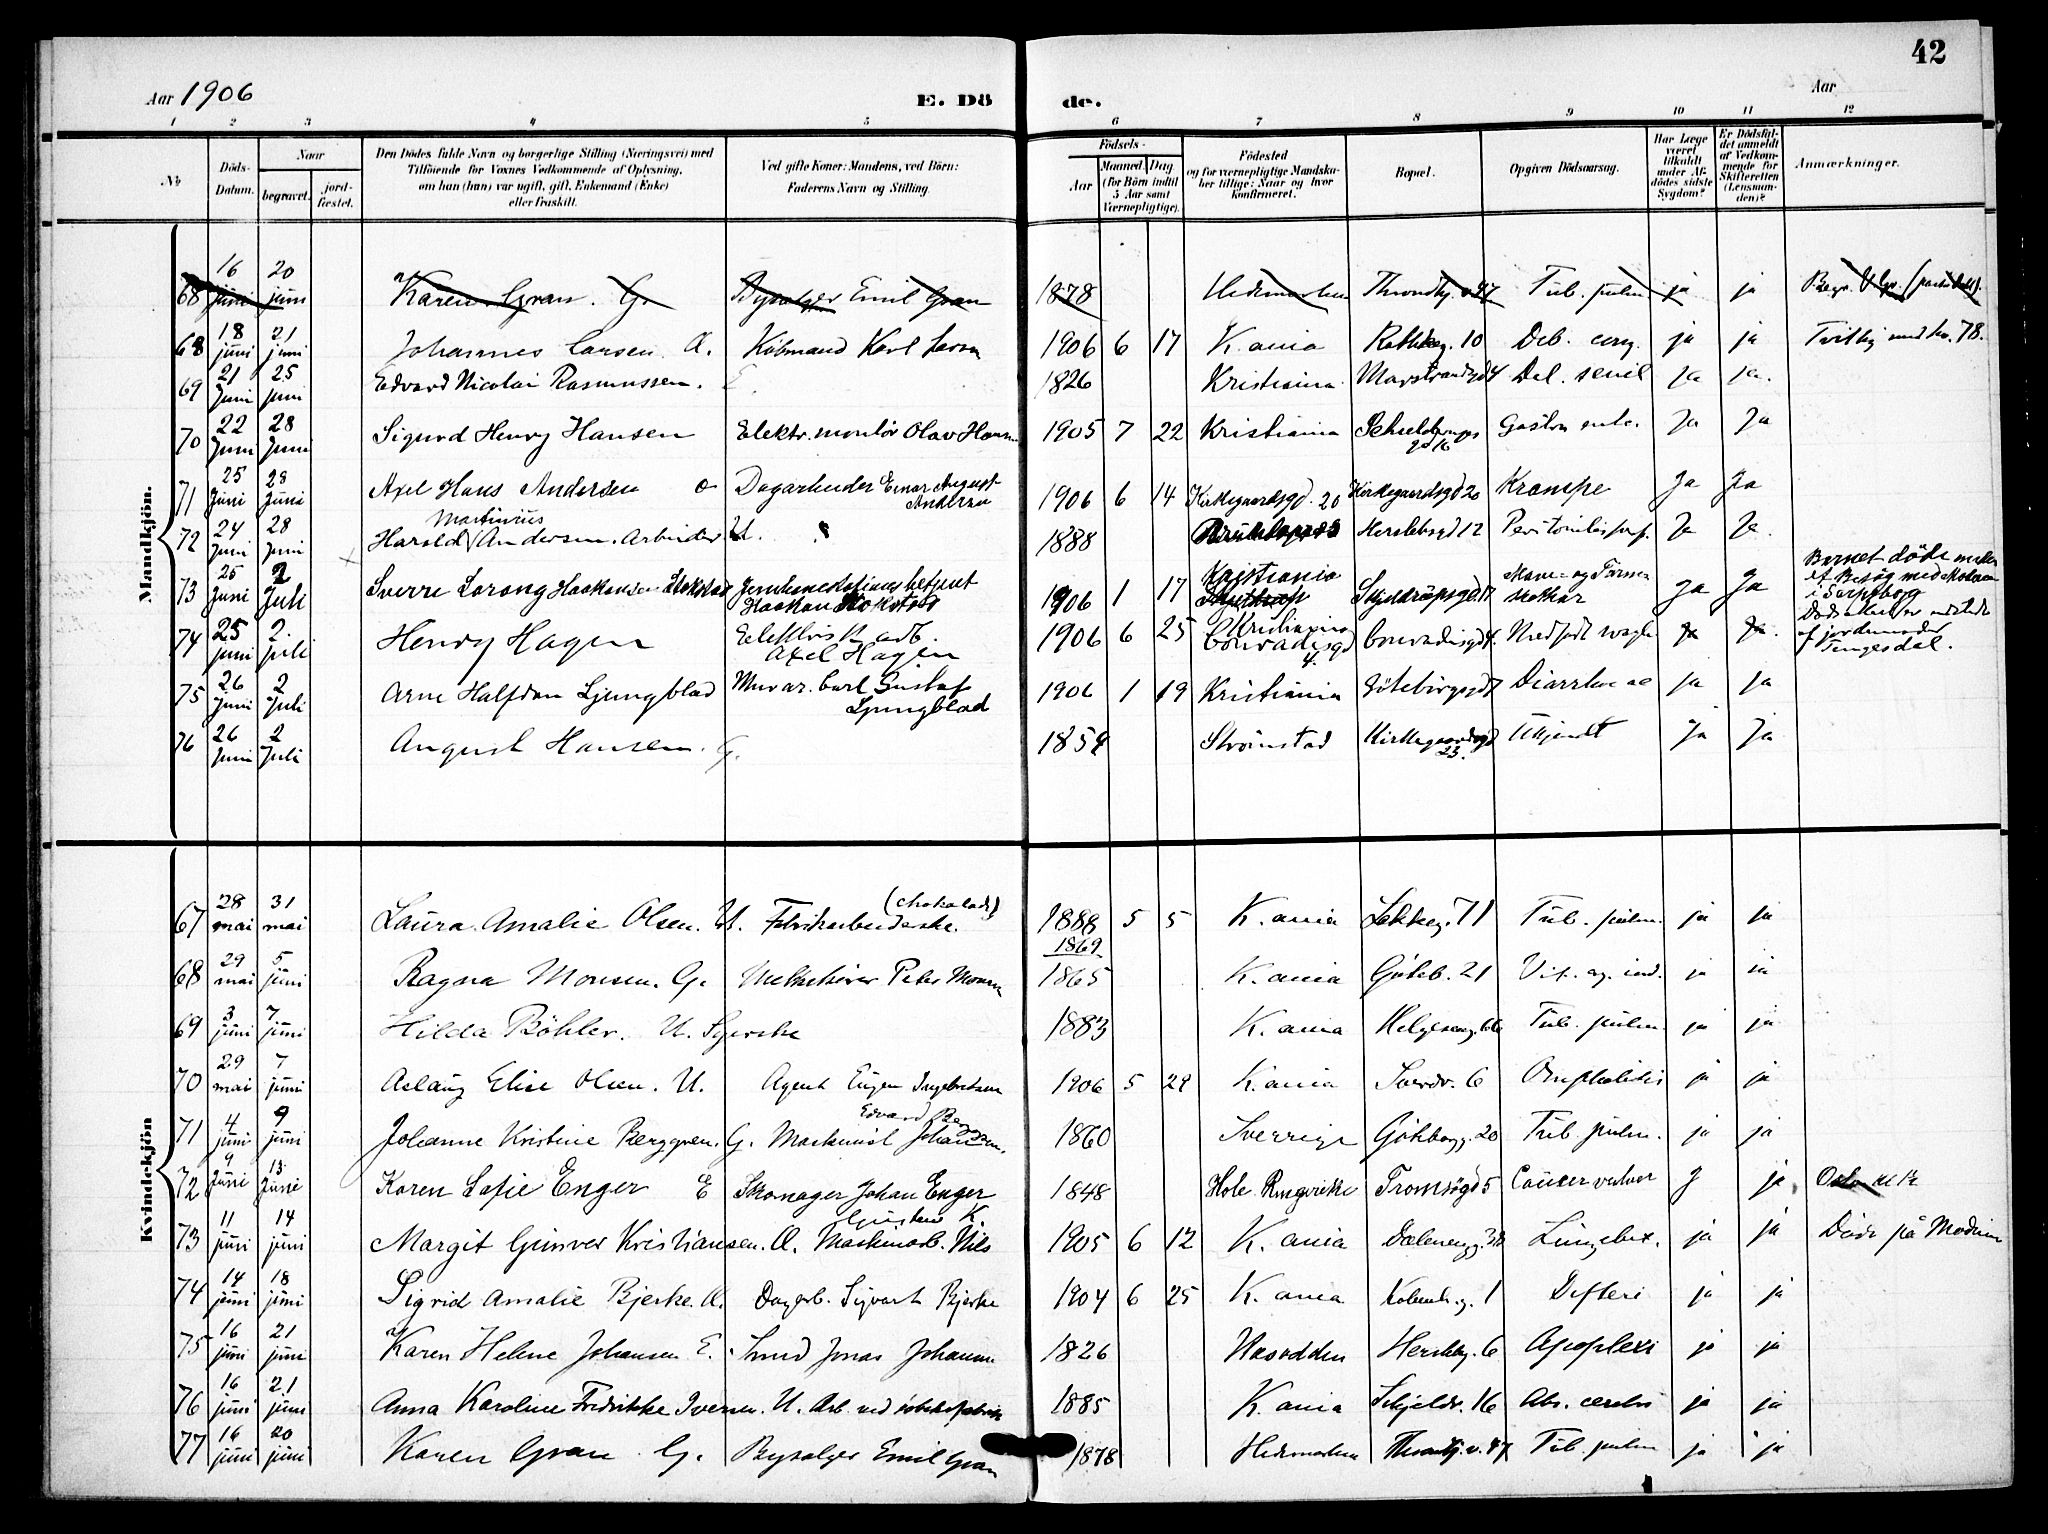 42
Aar 1906 E. Dö de. Aar
1 2 3 4 5 6 7 8 9 10 11 12
No
Döds-Datum.
Naar
begravet.
jord-fæstet.
Den Dödes fulde Navn og borgerlige Stilling (Næringsvei) med
Tilföiende for Voxnes Vedkommende af Oplysning,
om han (hun) var ugift, gift, Enkemand (Enke)
eller fraskilt.
Ved gifte Koner: Mandens, ved Börn:
Faderens Navn og Stilling.
Födsels-
Aar
Maaned. Dag
(for Börn indtil
5 Aar samt
Værnepligtige).
Födested
og for værnepligtige Mandska-
ber tillige: Naar og hvor
konfirmeret.
Bopæl.
Opgiven Dödsaarsag.
Har Læge
været
tilkaldt
under Af-
dödes sidste
Sygdom?
Er Dödsfal-
det anmeldt
af Vedkom-
mende for
Skifteretten
(Lensman-
den)?
Anmærkninger.
Mandkjön.
68 16 juni 20 juni Karen Gran. G. Bysælger Emil Gran 1878 Hedemarken Tub. pulm ja ja
68 18 juni 21 juni Johannes Larsen A. Købmand Karl Larsen 1906 6 17 K.ania 10 Deb. cong. ja ja Tvilling med No. 78.
69 21 Juni 25 juni Edvard Nicolai Rasmussen. E 1826 Kristiania Marstrandgd 4 Deb. senil ja ja.
70 22 Juni 28 Juni Sigurd Henry Hansen Elektr. montör Olav Hansen 1905 7 22 Kristiania 16 Gastro ente. Ja Ja
71 25 Juni 28 Juni Axel Hans Andersen Dagarbeider Einar August Andersen 1906 6 14 Kirkegaardsgd. 20 Kirkegaardsgd 20 Krampe Ja Ja
72 24 Juni 28 Juni Harald Martinius Andersen. Arbeider U. 1888 Herslebsgd 12 Ja Ja.
73 25 Juni 2 Juli Sverre Haakonsen Stokstad Haakon Stokstad 1906 1 17 Kristiania Mave- og Tarm- Ja Ja Barnet döde under et Besög med Moderen i Sarpsborg
74 25 juni 2. juli Henry Hagen Elektris k arb. Axel Hagen 1906 6 25 Kristiania Conradisgd 4. Conradisgd 4. Medfödt svagh. Ja Ja. Dödsattest af jordemoder Tingesdal.
75 26 Juni 2 Juli Arne Halfdan Ljungblad Murar. Carl Gustaf Ljungblad 1906 1 19 Kristiania Göteborgsgd 7 Diarrhoe ac ja ja
76 26 Juni 2 Juli August Hansen. G. 1854 Strömstad Kirkegaardsgd 23. Ukjendt Ja Ja
Kvindekjön
67 28 mai 31 mai Laura Amalie Olsen. U. Fabrikarbeiderske. (chokolade) 1888 5 5 K.ania 71 Tub. pulm. ja ja
68 29 mai 5 juni Ragna Monsen. G. Melkekjører Peter Monsen 1869 1865 K.ania Göteb. 21 ja ja
69 3 juni 7. juni Hilda Böhler. U. Syerske 1883 K.ania Tub. pulm. ja ja
70 29 mai 7 juni Aslaug Elise Olsen. U. Agent Eugen Ingebretsen 1906 5 29 K.ania 6 Omphalitis ja ja
71 4 juni 9 juni Johanne Kristine Berggren. G. Maskinist Johan Edvard Berggren. 1860 Sverrige 20 Tub. pulm. ja ja
72 9 Juni 13 Juni Karen Sofie Enger E Skomager Johan Enger 1848 Hole Ringerike Tromsögd 5 Cancer vulver J ja
73 11 juni 14 juni Margit Gunver Kristiansen. A. Maskinarb. Nils K. 1905 6 12 K.ania Dælenengg. 38 Lungebet. ja ja Döde på Modum
74 14 juni 18 juni Sigrid Amalie Bjerke. A. Dagarb. Sigvart Bjerke 1904 6 25 K.ania Københ.g. 1 Difteri ja ja
75 16 juni 21 juni Karen Helene Johansen E. Smed Jonas Johansen 1826 Hasodden Herslebg. 6 Apoplexi ja ja
76 16 juni 21 juni Anna Karoline Fredrikke Iversen. U. Arb. ved tobaksfabrik 1885 K.ania Schjeldr. 16 Abs. cerebri ja ja
77 16 juni 20 juni Karen Gran. G. Bysælger Emil Gran 1878 Hedemarken Tub. pulm ja ja